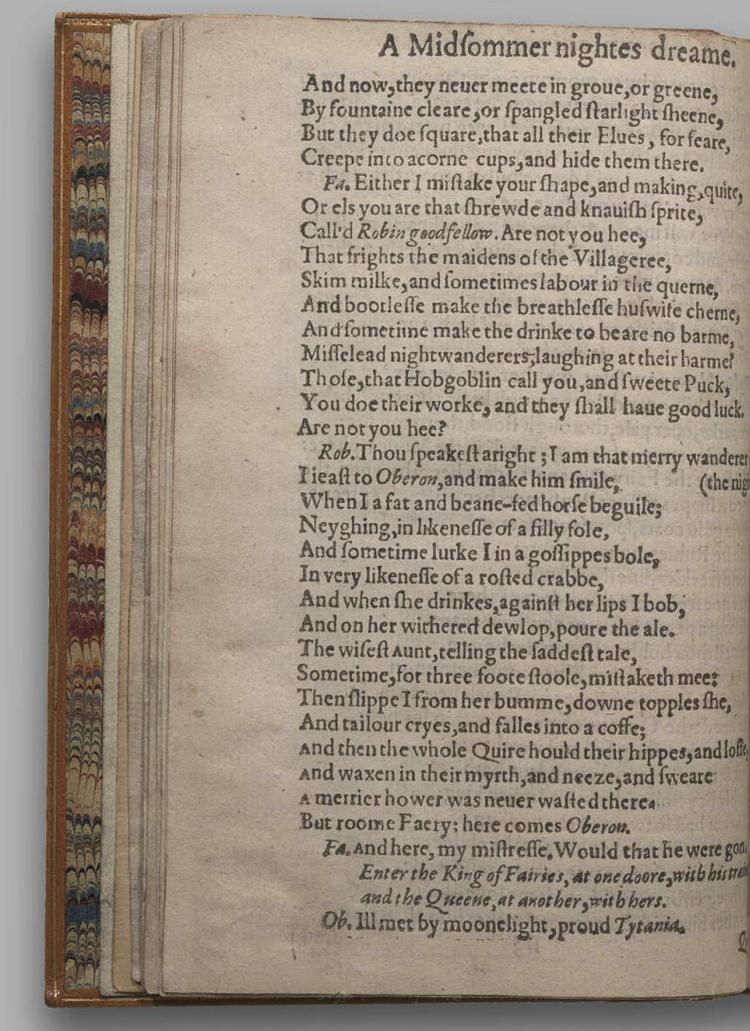 A Midſommer nightes dreame.
And now, they neuer meete in groue, or greene,
By fountaine cleare, or ſpangled ſtarlight ſheene,
But they doe ſquare, that all their Elues, for feare,
Creepe into acorne cups, and hide them there.
Fa. Either I miſtake your ſhape, and making, quite,
Or els you are that ſhrewde and knauiſh ſprite,
Call'd Robin goodfellow. Are not you hee,
That frights the maidens of the Villageree,
Skim milke, and ſometimes labour in the querne,
And bootleſſe make the breathleſſe huſwife cherne,
And ſometime make the drinke to beare no barme,
Miſſelead nightwanderers, laughing at their harme?
Thoſe, that Hobgoblin call you, and ſweete Puck,
You doe their worke, and they ſhall haue good luck.
Are not you hee?
Rob. Thou ſpeakeſt aright; I am that merry wanderer
I ieaſt to Oberon, and make him ſmile, (the nig
When I a fat and beane-fed horſe beguile;
Neyghing, in likeneſſe of a filly fole,
And ſometime lurke I in a goſſippes bole,
In very likeneſſe of a roſted crabbe,
And when ſhe drinkes, againſt her lips I bob,
And on her withered dewlop, poure the ale.
The wiſeſt Aunt, telling the ſaddeſt tale,
Sometime, for three foote ſtoole, miſtaketh mee:
Then ſlippe I from her bumme, downe topples ſhe,
And tailour cryes, and falles into a coffe;
And then the whole Quire hould their hippes, and loffe,
And waxen in their myrth, and neeze, and ſweare
A merrier hower was neuer waſted there.
But roome Faery: here comes Oberon.
Fa. And here, my miſtreſſe. Would that he were gon
Enter the King of Fairies, at one doore, with his trai
and the Queene, at another, with hers.
Ob. Ill met by moonelight, proud Tytania.